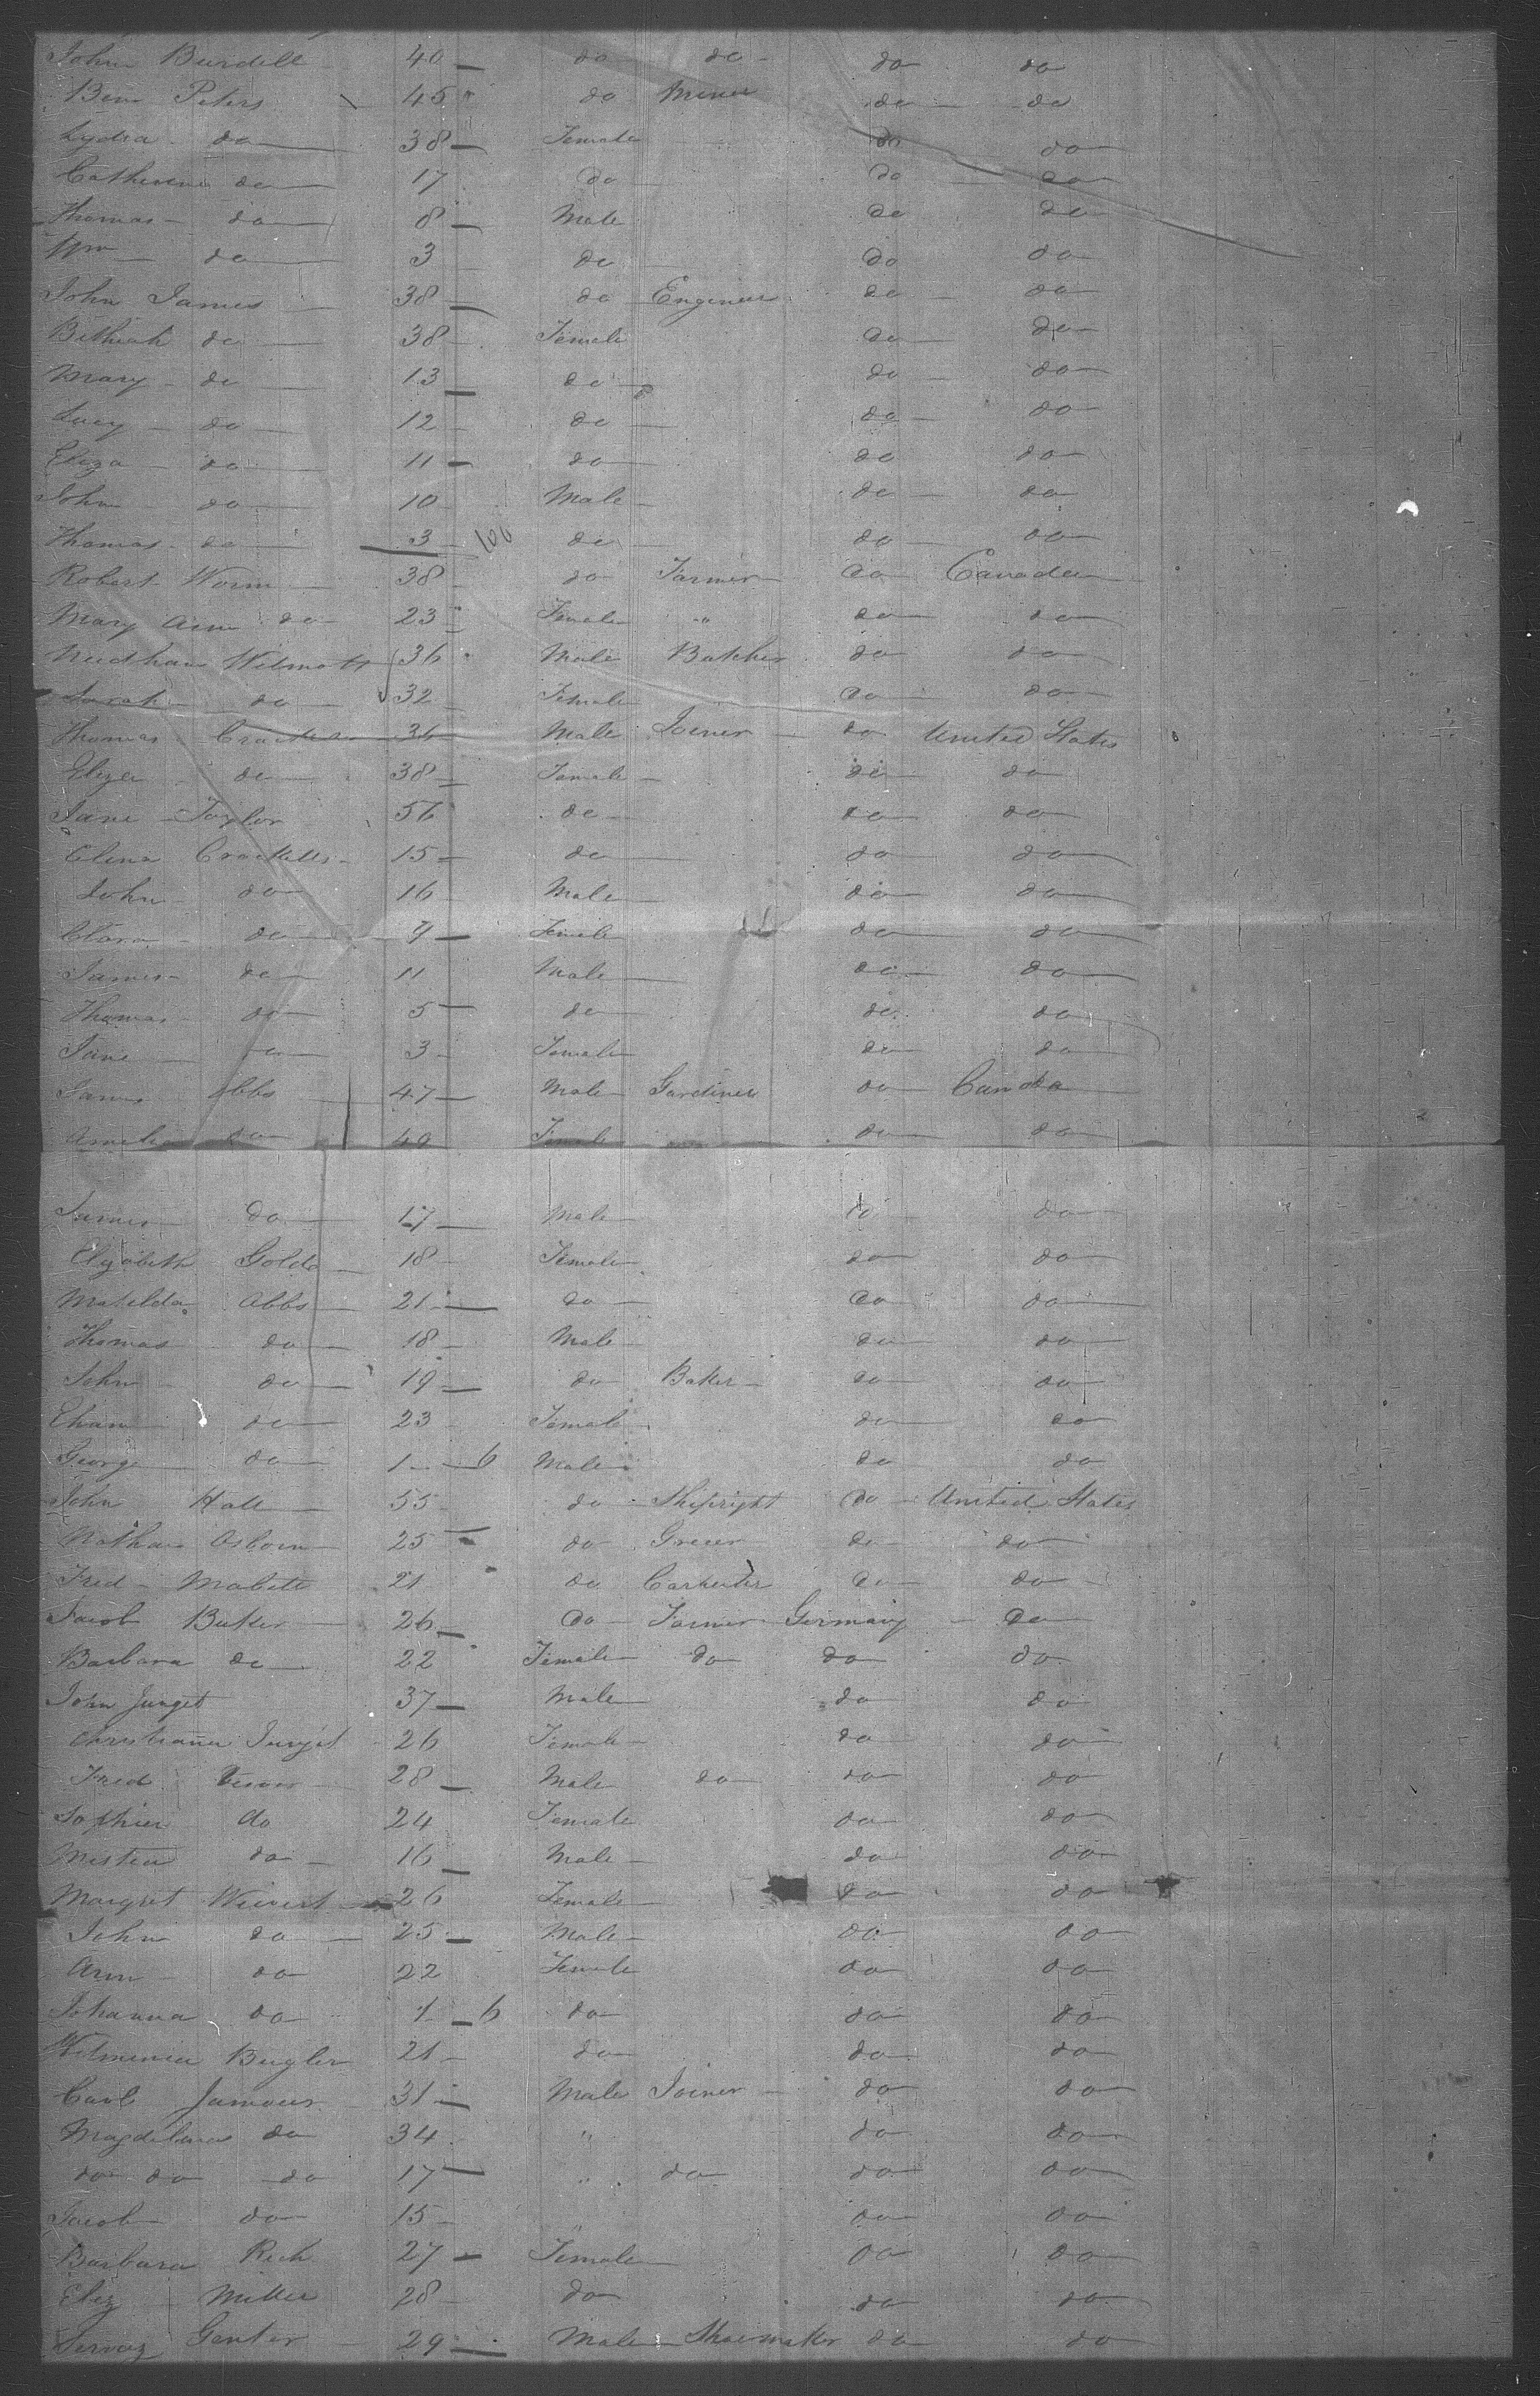 John Burdell 40 do do do do
Benn Peters 45 do Miner do do
Lydia do 38 Female do do
Catherine do 17 do do do
Thomas do 8 Male do do
Wm do 3 do do do
John James 38 do Engineer do do
Bethiah do 38 Female do do
Mary do 13 do do do
Lucy do 12 do do do
Eliza do 11 do do do
John do 10 Male do do
Thomas do 3 100 do do do
Robert Worm 38 do Farmer do Canada
Mary Ann do 23 Female " do do
Needham Wilmots 36 Male Butcher do do
Sarah do 32 Female do do
Thomas 36 Male Joiner do United States
Eliza do 38 Female do do
Jane Taylor 56 do do do
Elena Cracketts 15 do do do
John do 16 Male do do
Clara do 9 Female do do
James do 11 Male do do
Thomas do 5 do do do
Jane do 3 Female do do
James Abbs 47 Male Gardiner do Canada
Amelia do 40 Female do do
James do 17 Male do do
Elizabeth Golds 18 Female do do
Matilda Abbs 21 do do do
Thomas do 18 Male do do
John do 19 do Baker do do
do 23 Female do do
George do 1 6 Male do do
John Hall 55 do Shipright do United States
Nathan Osborn 25 do Grocer do do
Fred 21 do Carpenter do do
Jacob Baker 26 do Farmer Germany do
Barbara do 22 Female do do do
John Junget 37 Male do do
Christianna Junget 26 Female do do
Fred 28 Male do do do
Sophier do 24 Female do do
do 16 Male do do
Margret Weivert 26 Female do do
John do 25 Male do do
Ann do 22 Female do do
Johanna do 1 6 do do do
Wilminia Bugler 21 do do do
Carl Jamours 31 Male Joiner do do
Magdalena do 34 " do do
do do do 17 " do do do
Jacob do 15 " do do
Barbara Rich 27 Female do do
Eliz Miller 28 do do do
Genter 29 Male Shoemaker do do